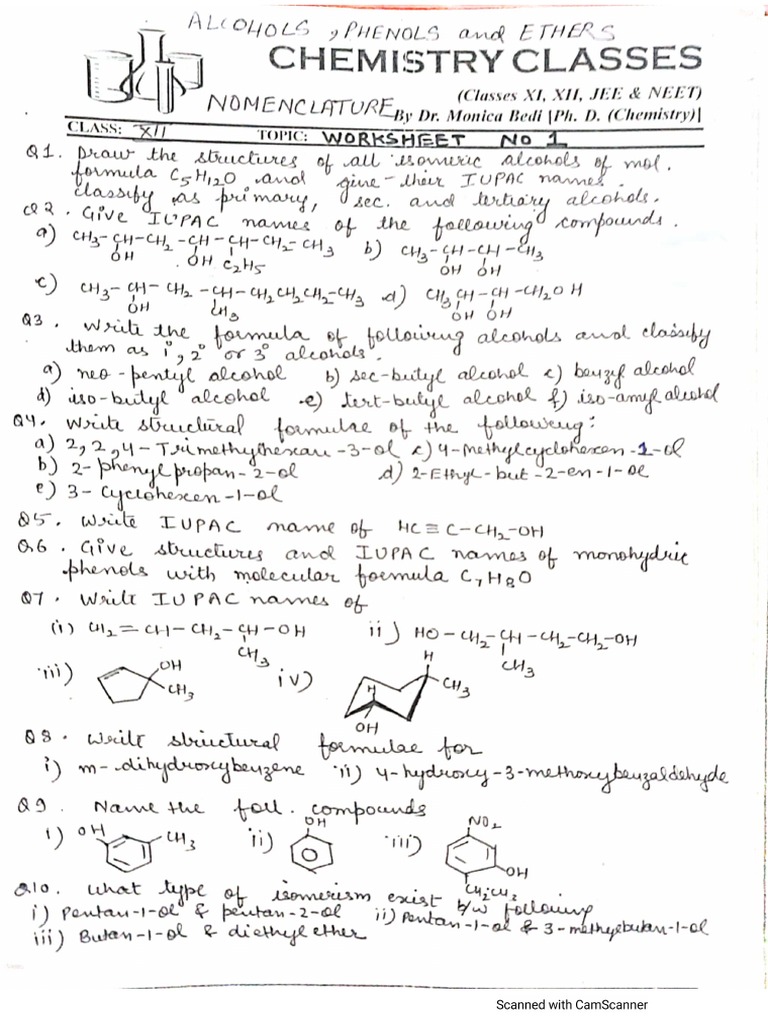 ALCOHOLS, PHENOLS and ETHERS
CHEMISTRY CLASSES
(Classes XI, XII, JEE & NEET)
NOMENCLATURE By Dr. Monica Bedi |Ph. D. (Chemistry)|
CLASS: XII TOPIC: WORKSHEET NO 1
Q1. Draw the structures of all isomeric alcohols of mol.
formula C5H12O and give their IUPAC names.
classify as primary, sec. and tertiary alcohols.
Q2. Give IUPAC names of the following compounds.
a) CH3-CH-CH2-CH-CH-CH2-CH3 b) CH3-CH-CH-CH3
OH OH C2H5 OH OH
c) CH3-CH-CH2-CH-CH2CH2CH2-CH3 d) CH3CH-CH-CH2OH
OH CH3 OH OH
Q3. Write the formula of following alcohols and classify
them as 1°, 2° or 3° alcohols.
a) neo-pentyl alcohol b) sec-butyl alcohol c) benzyl alcohol
d) iso-butyl alcohol e) tert-butyl alcohol f) iso-amyl alcohol
Q4. Write structural formulae of the following:
a) 2,2,4-Trimethylhexan-3-ol c) 4-Methylcyclohexen-1-ol
b) 2-phenylpropan-2-ol d) 2-Ethyl-but-2-en-1-ol
e) 3-cyclohexen-1-ol
Q5. Write IUPAC name of HC≡C-CH2-OH
Q6. Give structures and IUPAC names of monohydric
phenols with molecular formula C7H8O
Q7. Write IUPAC names of
(i) CH2=CH-CH2-CH-OH ii) HO-CH2-CH-CH2-CH2-OH
CH3 CH3
iii) OH CH3 iv) H CH3 H OH
Q8. Write structural formulae for
i) m-dihydroxybenzene ii) 4-hydroxy-3-methoxybenzaldehyde
Q9. Name the foll. compounds
i) OH CH3 ii) OH iii) NO2 OH CH2CH3
Q10. What type of isomerism exist b/w following
i) Pentan-1-ol & pentan-2-ol ii) Pentan-1-ol & 3-methylbutan-1-ol
iii) Butan-1-ol & diethyl ether
Scanned with CamScanner